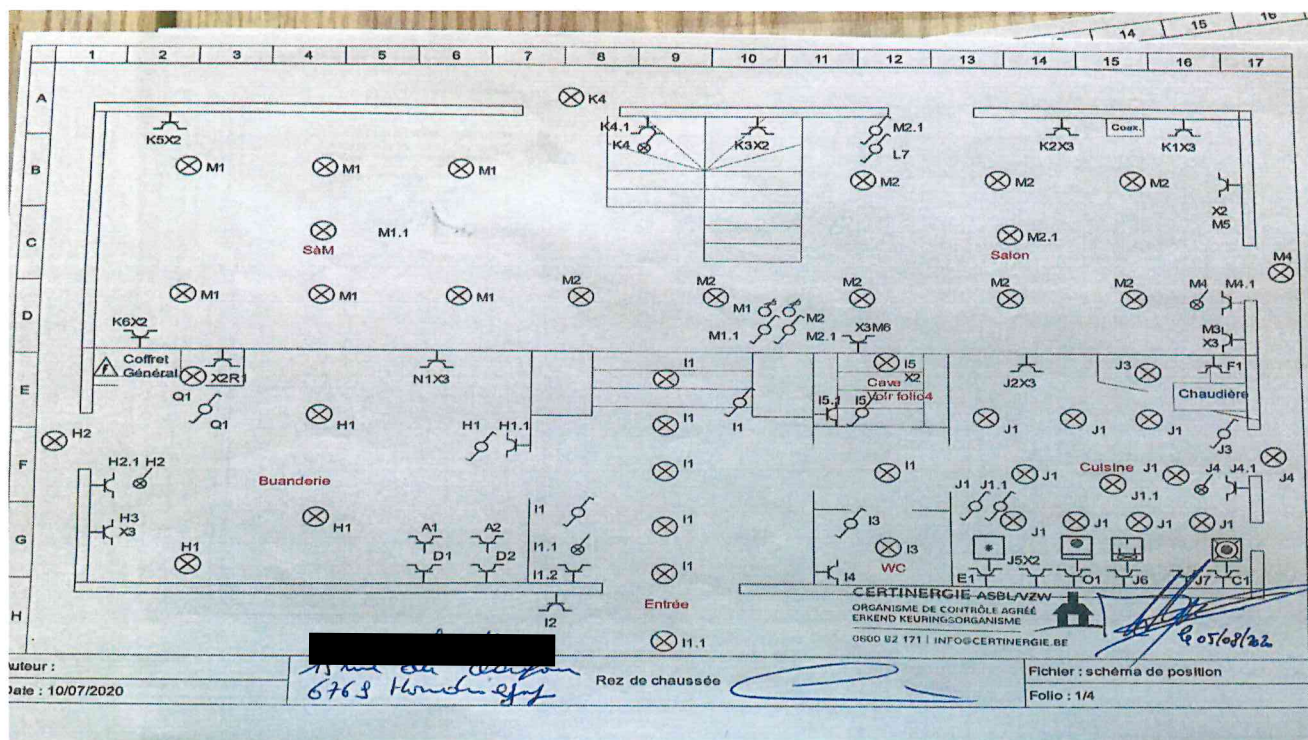 14 15 16
1 2 3 4 5 6 7 8 9 10 11 12 13 14 15 16 17
A
K4
K5X2
K4.1
K4
K3X2
M2.1
L7
K2X3
Coax.
K1X3
B
M1
M1
M1
M2
M2
M2
X2
M5
C
M1.1
SàM
M2.1
Salon
M4
D
M1
M1
M1
M2
M2
M1
M2
M1.1
M2.1
M2
M2
M2
M4
M4.1
K6X2
X3M6
M3
X3
E
Coffret
Général
X2R1
Q1
Q1
N1X3
I1
I1
I5
Cave
X2
Voir folio4
I5.1
I5
J2X3
J3
F1
Chaudière
H1
I1
J1
J1
J1
J3
F
H2
H2.1
H2
Buanderie
H1
H1.1
I1
I1
Cuisine
J1
J1
J1.1
J4
J4.1
J4
G
H3
X3
H1
H1
A1
A2
D1
D2
I1
I1.1
I1.2
I1
I1
I3
I3
WC
I4
J1
J1.1
J1
J1
J1
J1
J5X2
E1
O1
J6
J7
C1
H
I2
Entrée
I1.1
CERTINERGIE ASBL/VZW
ORGANISME DE CONTRÔLE AGRÉÉ
ERKEND KEURINGSORGANISME
0800 82 171 | INFO@CERTINERGIE.BE
le 05/08/2020
Auteur :
Date : 10/07/2020
Rez de chaussée
Fichier : schéma de position
Folio : 1/4